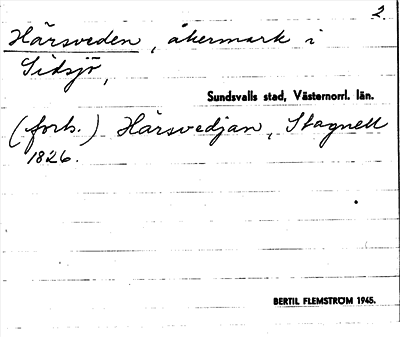 2.
Hårsveden, åkermark i
Sidsjö,
Sundsvalls stad, Västernorrl. län.
(forts.) Hårsvedjan, Stagnell
1826.
BERTIL FLEMSTRÖM 1945.